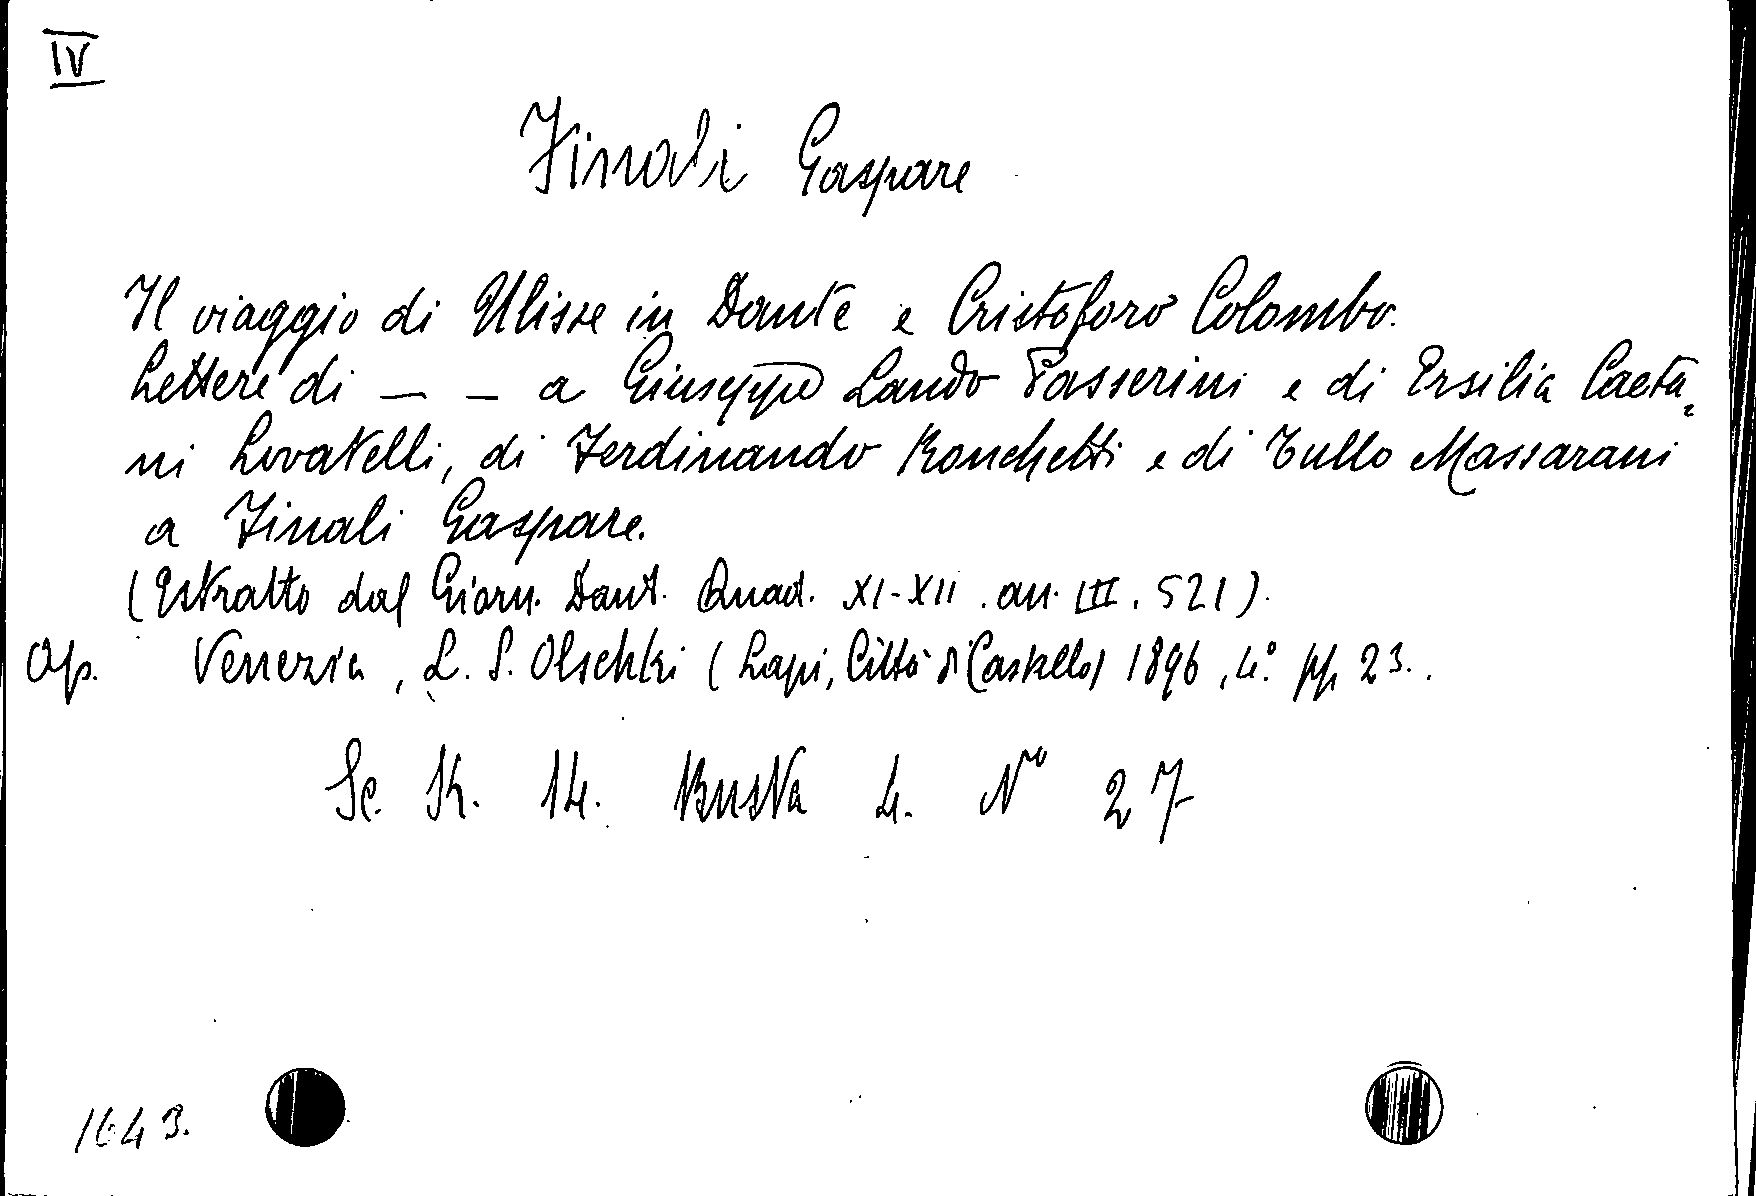 IV
Finali Gaspare
Il viaggio di Ulisse in Dante e Cristoforo Colombo.
Lettere di _ _ a Giuseppe Lando Passerini e di Ersilia Caeta=
ni Lovatelli, di Ferdinando Ronchetti e di Tullo Massarani
a Finali Gaspare.
(Estratto dal Giorn. Dant. Quad. XI-XII. an. III. 521).
Op. Venezia, L. S. Olschki (Lapi, Città di Castello) 1896, 4.° pp. 23.
Sc. K. 14. Busta 4. No 27
1643.